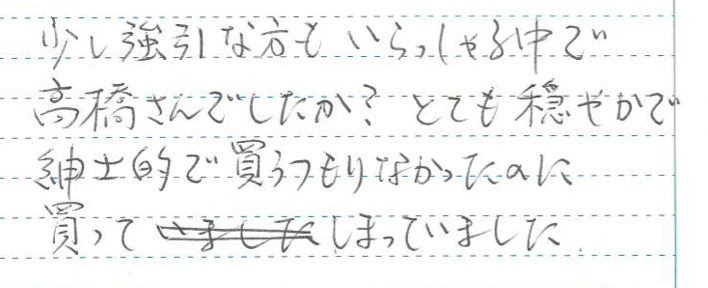 少し強引な方もいらっしゃる中で
高橋さんでしたか？とても穏やかで
紳士的で買うつもりなかったのに
買ってしまっていました